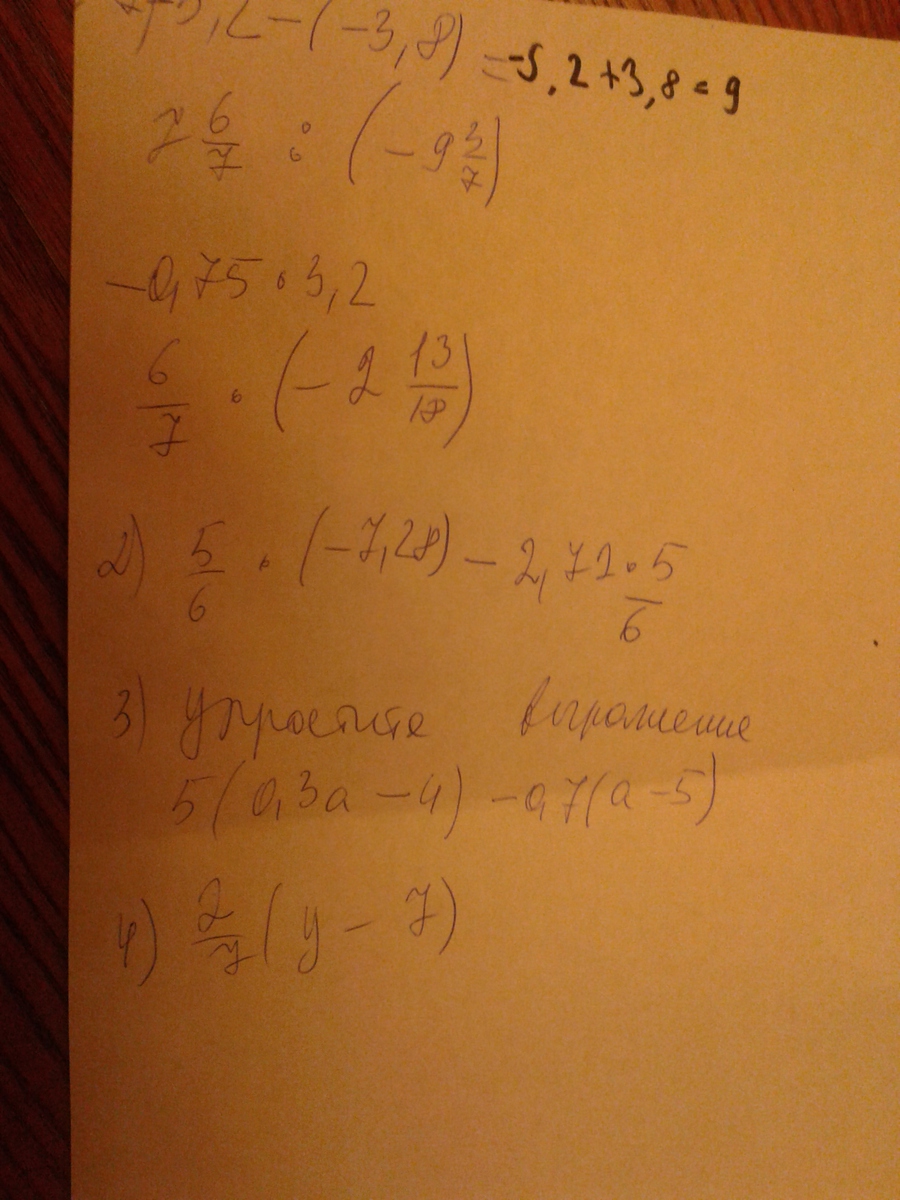 ,2-(-3,8) =-5,2+3,8=9
7 6/7 : (-9 3/7)
-0,75·3,2
6/7 · (-2 13/18)
2) 5/6 · (-7,28) - 2,72·5/6
3) Упростите выражение
5(0,3а-4)-0,7(а-5)
4) 2/7(у-7)